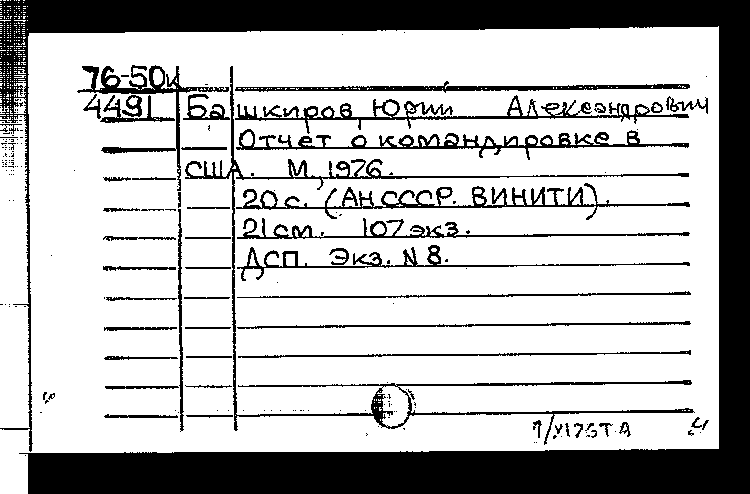 76-50к
4491 Башкиров, Юрии Александрович
Отчет о командировке в
США. М., 1976.
20 с. (АН СССР. ВИНИТИ).
21 см. 107 экз.
ДСП. Экз. N 8.